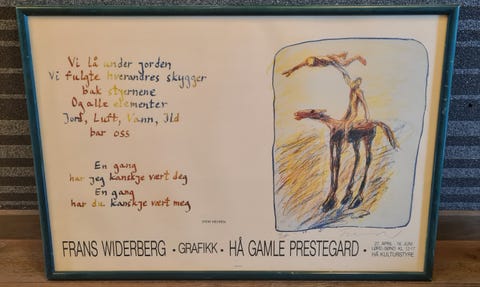 Vi lå under jorden
Vi fulgte hverandres skygger
bak stjernene
Og alle elementer
Jord, Luft, Vann, Ild
bar oss
En gang
har jeg kanskje vært deg
En gang
har du kanskje vært meg
FRANS WIDERBERG • GRAFIKK • HÅ GAMLE PRESTEGARD •
27. APRIL - 16. JUNI
LØRD.-SØND. KL. 12-17
HÅ KULTURSTYRE